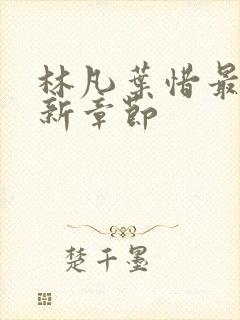 林凡葉惜最
新章節
楚千墨